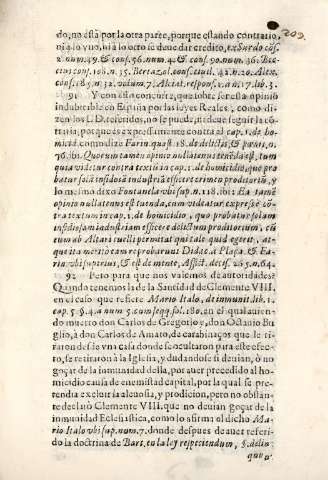 209.
do, no està por la otra parte, porque estando contrario,
ni à lo vno, ni à lo otro se deue dar credito, ex Surdo cõs.
2. num. 49. & conf. 56. num. 4. & conf. 90. num. 36. Bec-
cius conf. 106. n. 35. Bertazol. conf. ciuil. 42. n. 20. Alex.
conf. 189. n. 32. volum. 7. Alciat. respons. 1. n. 17. lib. 3.
91 Y con esto concurre, que sobre ser esta opinió
indubitable en España por las leyes Reales, como di-
zen los DD. referidos, no se puede, ni deue seguir la cõ-
traria, porque es expressamente contra al cap. 1. de ho-
micid. como dize Farin. quæst. 18. de delictis, & pœnis, n.
76. ibi. Quorum tamen opinio nullatenus tenẽda est, tum
quia videtur contra textũ in cap. 1. de homicidio, que pro
batur solã insidiã industriã efficere crimen proditoriũ, y
lo mesmo dixo Fontanela vbi sup. n. 118. ibi: Ea tamẽ
opinio nullatenus est tenẽda, cum videatur expresè cõ-
tra textum in cap. 1. de homicidio, quo probatur solam
insidiosam industriam efficere delictum proditorium, cũ
cum ab Altari tuelli permitat qui tale quid egerit, at-
que ita meritò eam reprobarunt Didac. à Plaça, & Fa-
rin. vbi superius, & est de mente, Afflict. decis. 265. n. 64.
92 Pero para que nos valemos de autoridades?
Quando tenemos la de la Santidad de Clemente VIII.
en el caso que refiere Mario Italo, de immunit. lib. 1.
cap. 5. §. 4. à num 5. cum seqq. fol. 180. en el qual auien-
do muerto don Carlos de Gregorio, y don Octauio Bu-
glio, à don Carlos de Amato, de carabinaços que le ti-
raron desde vna casa donde se ocultaron para este efec-
to, se retiraron à la Iglesia, y dudandose si deuian, ò no
goçar de la inmunidad della, por auer precedido al ho-
micidio causa de enemistad capital, por la qual se pre-
tendia excluir la aleuosia, y prodicion, pero no obstan-
te declarò Clemente VIII. que no deuian goçar de la
inmunidad Eclesiastica, como lo afirma el dicho Ma-
rio Italo vbi sup. num. 7. donde despues de auer referi-
do la doctrina de Bart. en la ley respiciendum, §. delin-
quũt